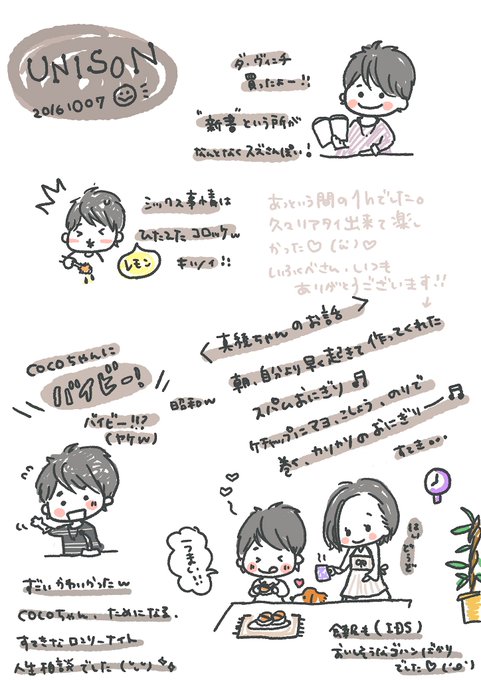 UNISON
20161007
ダ・ヴィンチ
買ったよー!!
"新書"という所が
なんとなくスズさんぽい!
ミックス事情は
ひたひた コロッケw
レモン
キツイ!!
あっという間の1hでした。
久々リアタイ出来て楽し
かった♡(¨)♡
いろはべさん、いつも
ありがとうございます!!
<真緒ちゃんのお話>
朝、自分より早く起きて作ってくれた
スパムおにぎり♫
ケチャップにマヨ、こしょう、のりで
巻く、カリカリのおにぎりー♫
すてき。。
COCOちゃんに
バイビー!
昭和w
バイビー!!?
(ヤケw)
うまし!!
はい
どうぞ
すごいかわいかったw
COCOちゃん、ためになる。
すてきなロンリーナイト
人生相談でした(¨)
(EDS)
おいしそうなゴハンばかり
でした♡(¨)